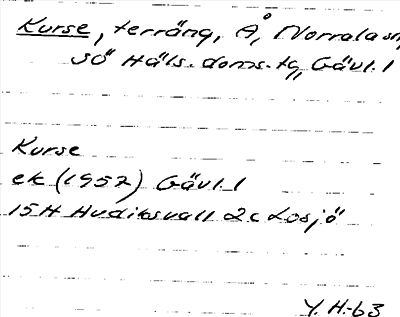 Kurse, terräng, Å, Norrala sn,
SÖ Häls. doms.tg, Gävl.l
Kurse
ek (1957) Gävl.l
15H Hudiksvall 2c Losjö
Y.H-63